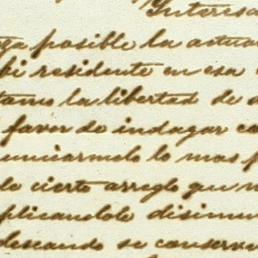 Interesa
posible la actua
bi residente en esa
tamo la libertad de
favor de indagar co
municarmelo lo mas p
de cierto arreglo que
plicandole disimu
deseando se conserv